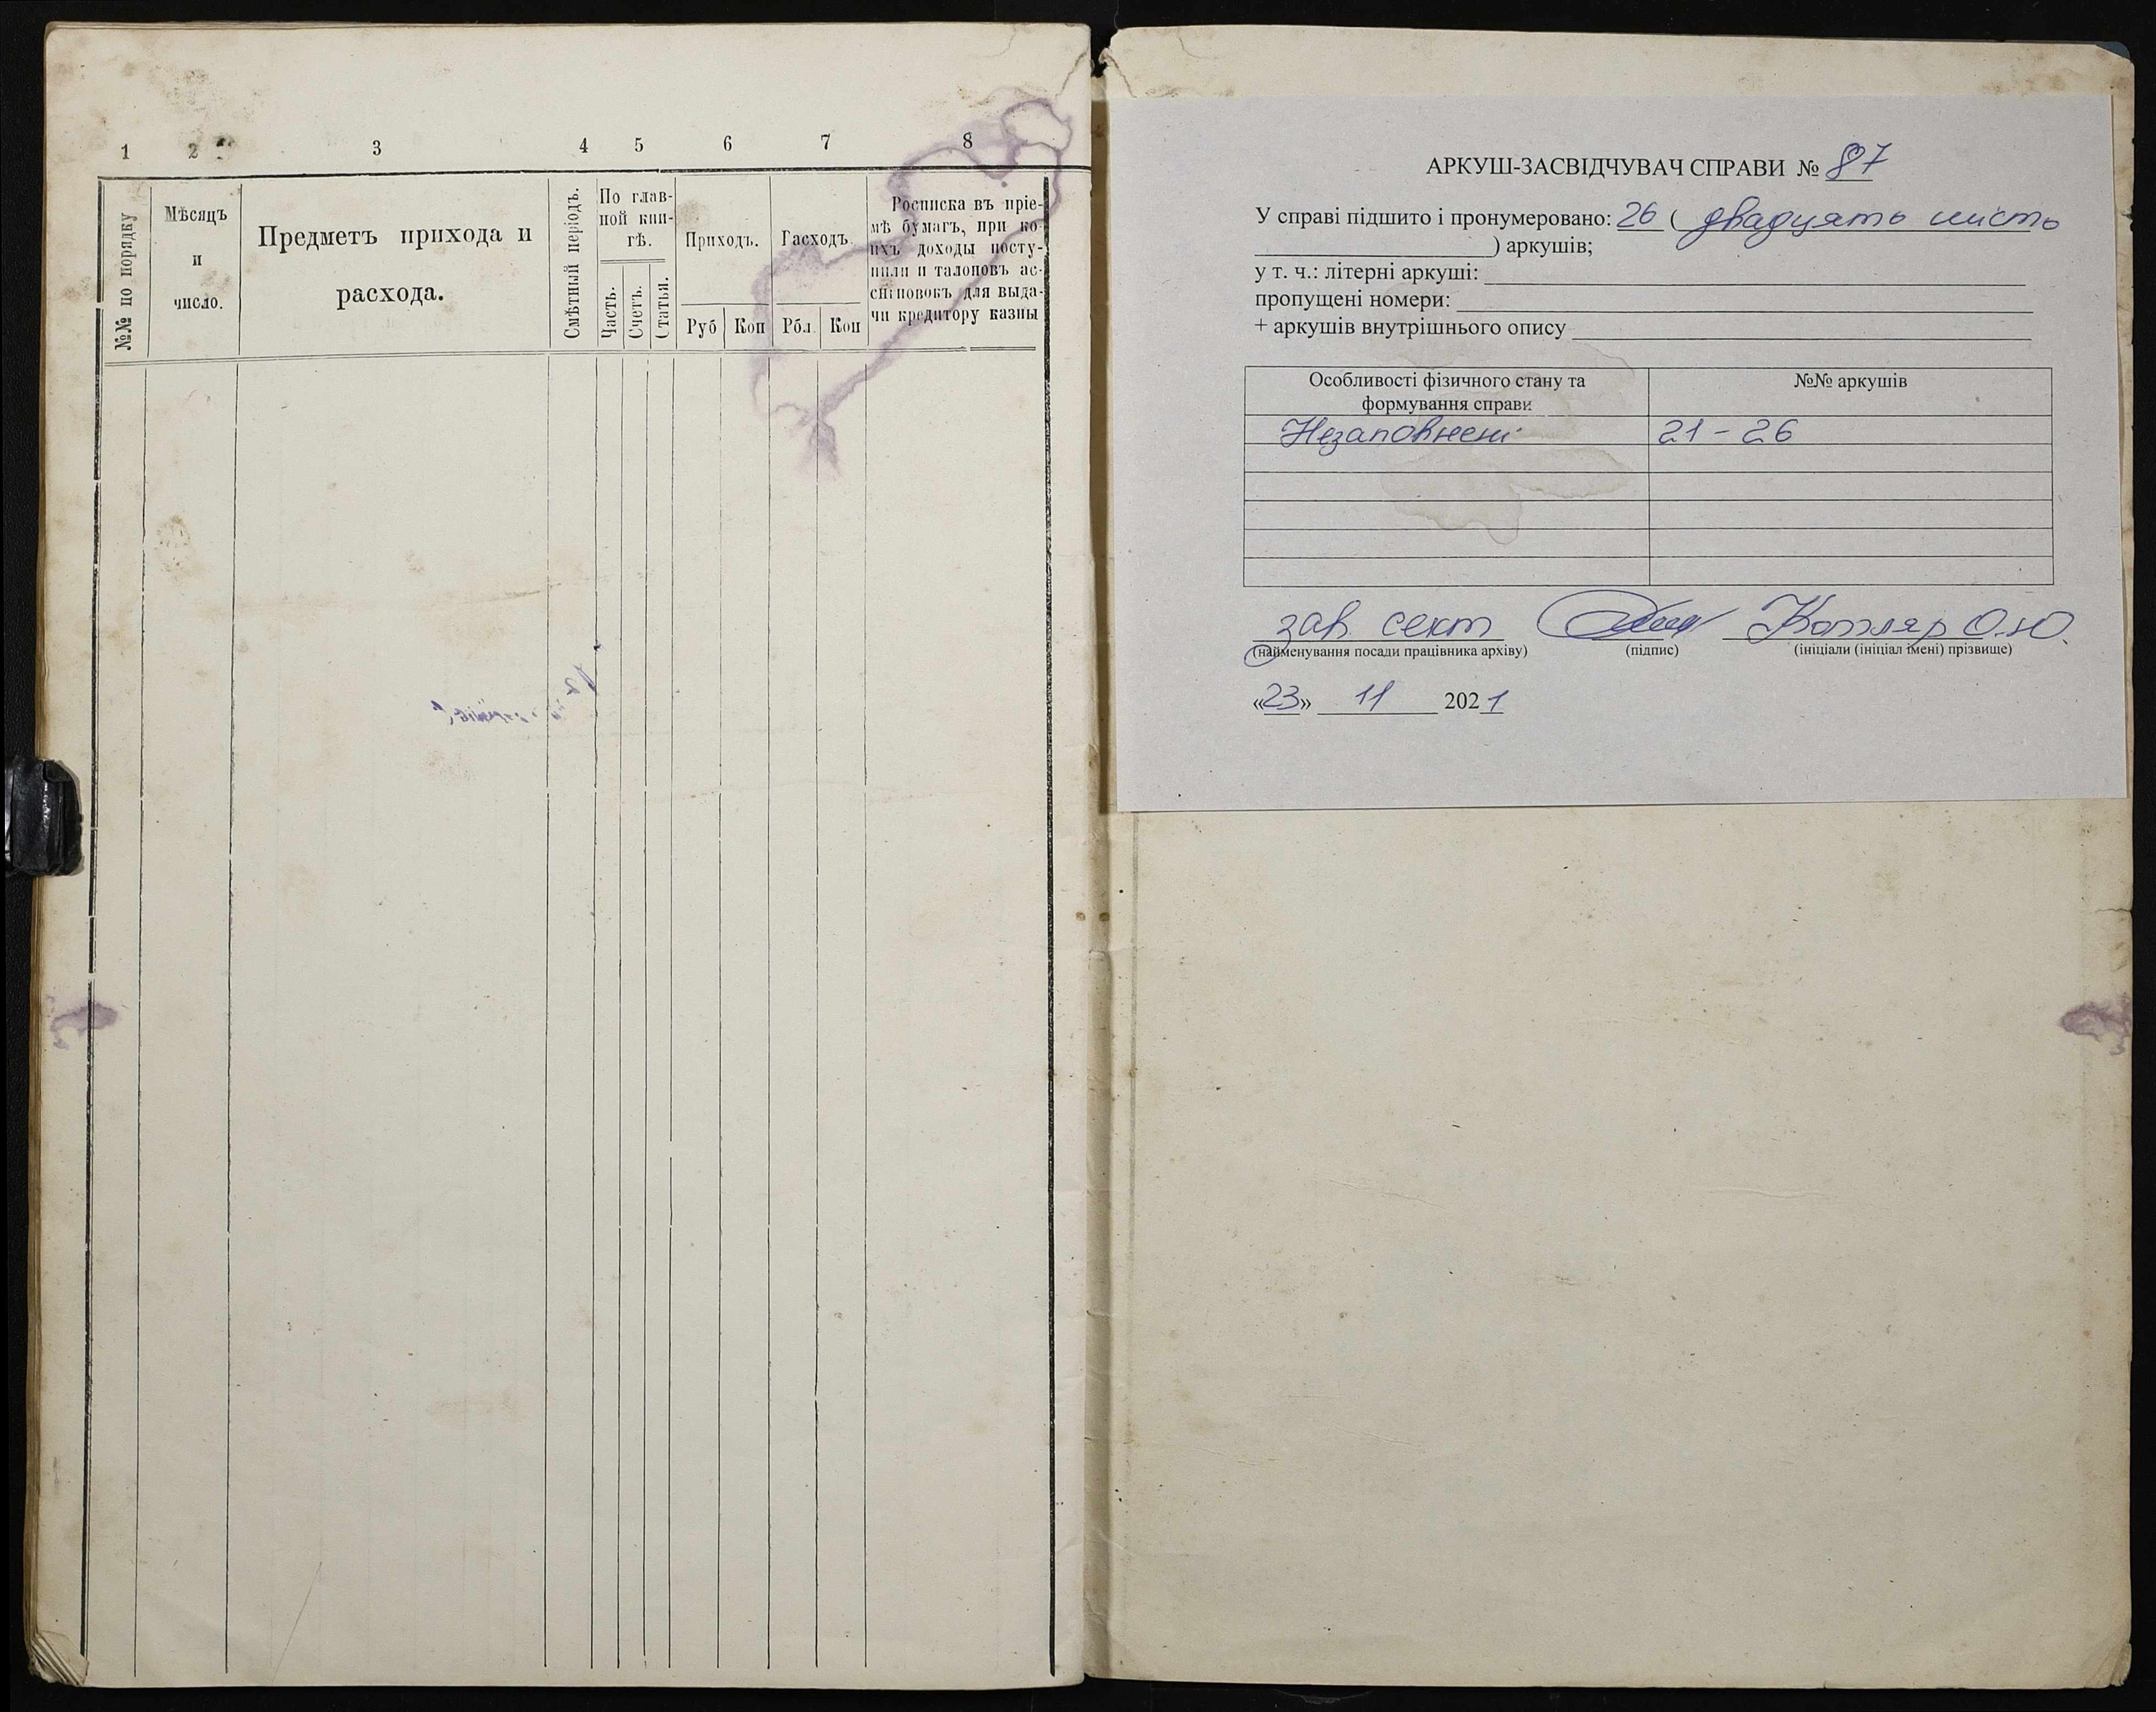 1 2 3 4 5 6 7 8
№№ по порядку
Мѣсяцъ
и
число.
Предметъ прихода и
расхода.
Смѣтный періодъ.
По глав-
ной кни-
гѣ.
Часть.
Счетъ.
Статья.
Приходъ.
Руб Коп
Расходъ.
Рбл. Коп
Росписка въ пріе-
мѣ бумагъ, при ко-
ихъ доходы посту-
пили и талоновъ ас-
сигновокъ для выда-
чи кредитору казны
АРКУШ-ЗАСВІДЧУВАЧ СПРАВИ № 87
У справі підшито і пронумеровано: 26 ( двадцять шість
) аркушів;
у т. ч.: літерні аркуші:
пропущені номери:
+ аркушів внутрішнього опису
Особливості фізичного стану та
формування справи
№№ аркушів
Незаповнені 21 - 26
зав. сект Котляр О.Ю.
(найменування посади працівника архіву) (підпис) (ініціали (ініціал імені) прізвище)
«23» 11 2021